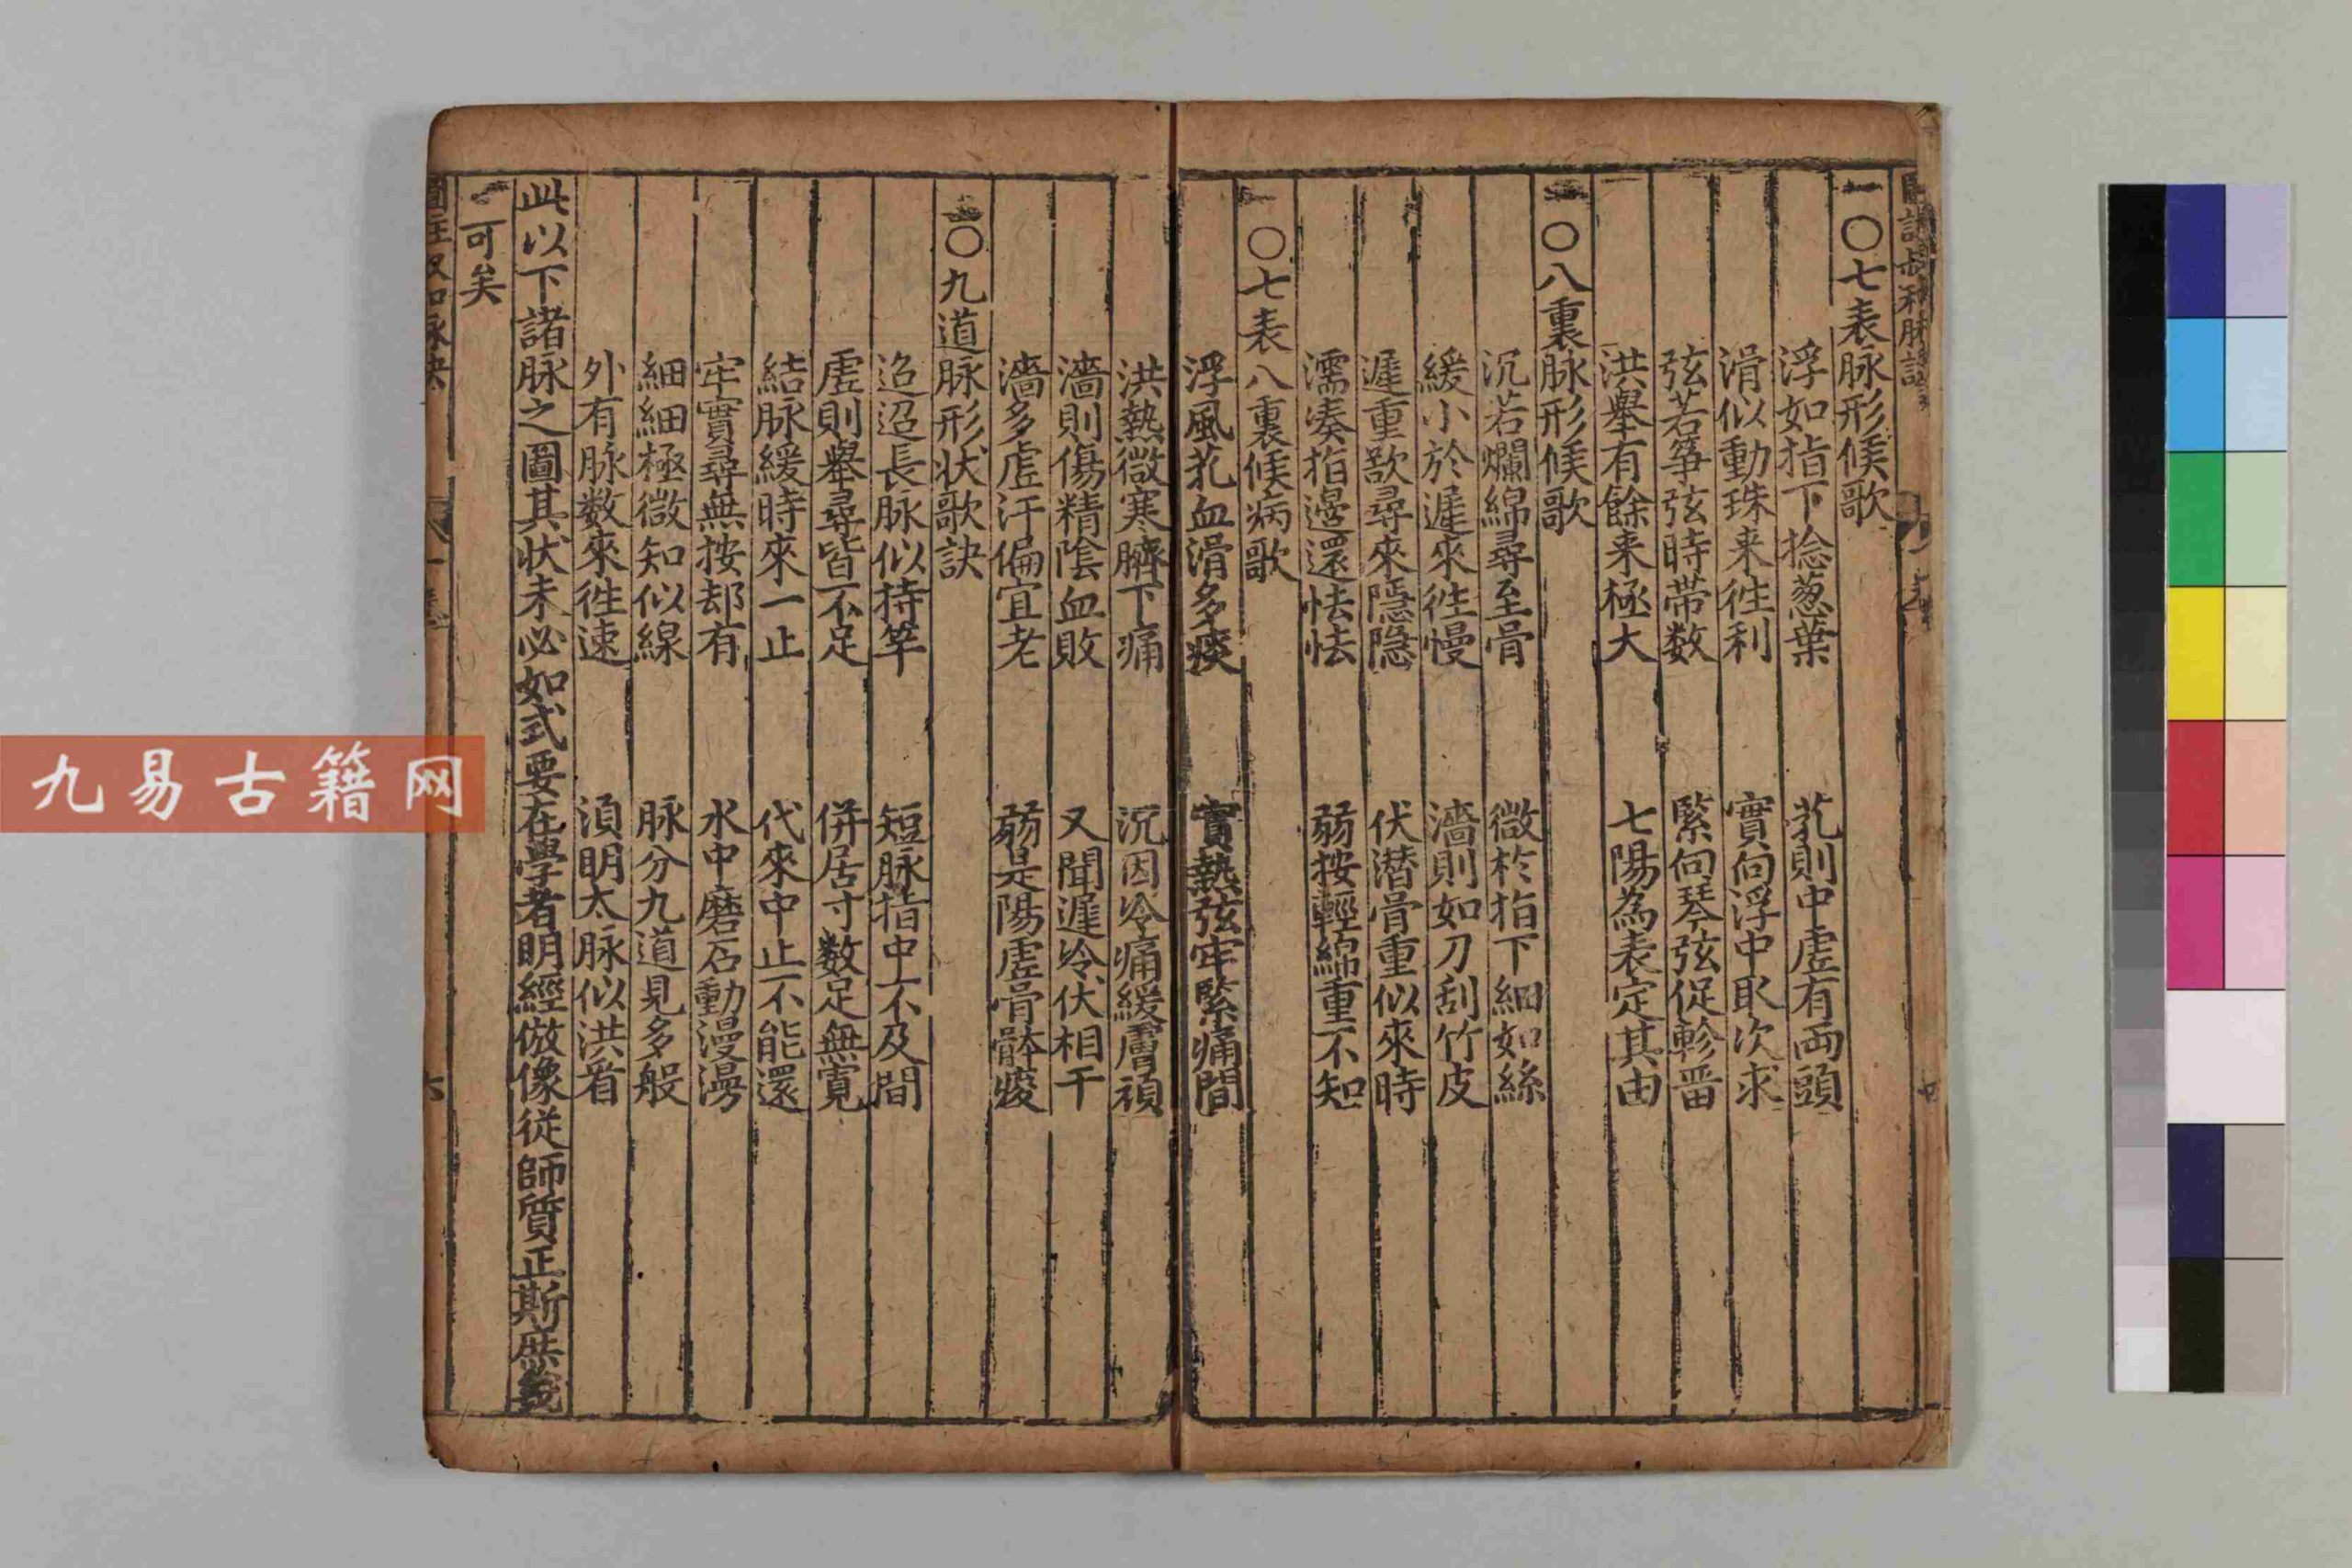 ○七表脉形候歌
浮如指下捻葱葉 芤則中虚有両頭
滑似動珠来徃利 實向浮中取次求
弦若筝弦時带数 緊向琴弦促軫畱
洪舉有餘来極大 七陽為表定其由
○八裏脉形候歌
沉若爛綿尋至骨 微扵指下細如絲
緩小於遲來徃慢 濇則如刀刮竹皮
遲重欵尋來隱隐 伏潛骨重似來時
濡凑指邉還怯怯 弱按輕綿重不知
○七表八裏候病歌
浮風芤血滑多痰 實熱弦牢緊痛間
洪熱微寒臍下痛 沉因冷痛緩膚頑
濇則傷精陰血敗 又聞遲冷伏相干
濇多虚汗偏宜老 弱是陽虚骨骵痠
○九道脉形状歌訣
迢迢長脉似持竿 短脉指中不及間
虚則舉尋皆不足 併居寸数足無寛
結脉緩時來一止 代來中止不能還
牢實尋無按却有 水中磨石動漫漫
細細極微知似線 脉分九道見多般
外有脉数來徃速 湏明太脉似洪看
此以下諸脉之圖其状未必如式要在學者明經倣像從師質正斯庶幾
可矣
六
九易古籍网